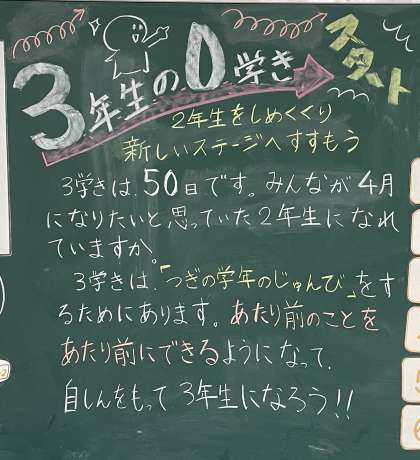 3年生の0学き
スタート
2年生をしめくくり
新しいステージへすすもう
3学きは、50日です。みんなが4月
になりたいと思っていた2年生になれ
ていますか。
3学きは、「つぎの学年のじゅんび」をす
るためにあります。あたり前のことを
あたり前にできるようになって、
自しんをもって3年生になろう!!